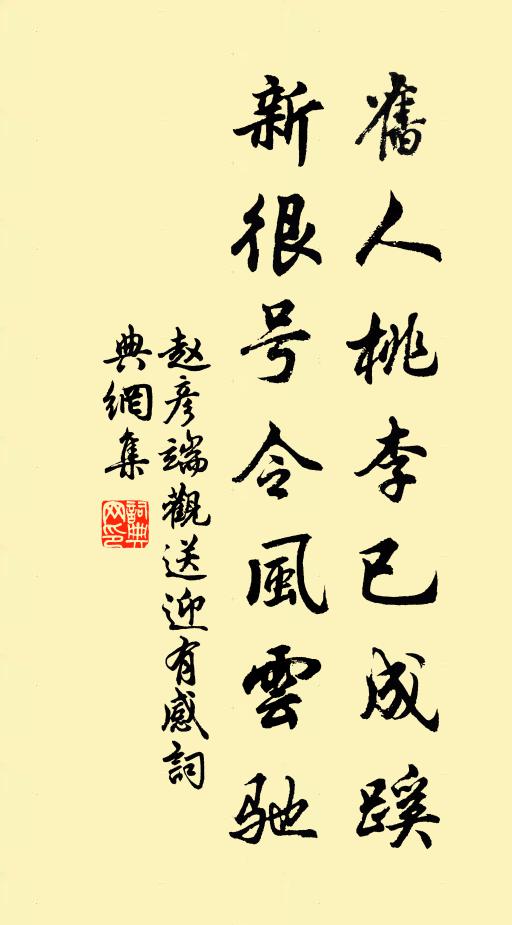 舊人桃李已成蹊
新很号令風雲馳
赵彦端觀送迎有感詞
典網集
詞典網印